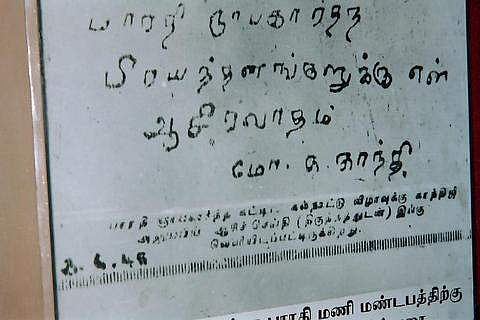 பாரதி ஞாபகார்த்த
பிரயத்தனங்களுக்கு என்
ஆசீர்வாதம்
மோ. க. காந்தி
பாரதி ஞாபகார்த்த கட்டிட கால்நாட்டு விழாவுக்கு காந்திஜி
அனுப்பிய ஆசிச் செய்தி (திருத்தத்துடன்) இங்கு
வெளியிடப்பட்டிருக்கிறது.
பாரதி மணி மண்டபத்திற்கு